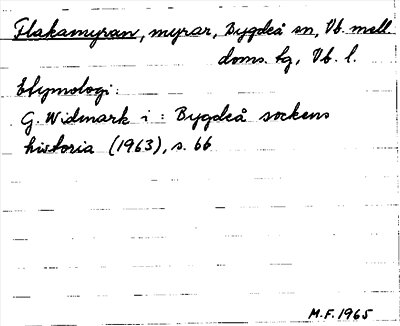 Flakamyran, myrar, Bygdeå sn, Vb. mell.
doms. hg, Vb. l.
Etymologi:
G. Widmark i: Bygdeå sockens
historia (1963), s. 66
M.F. 1965